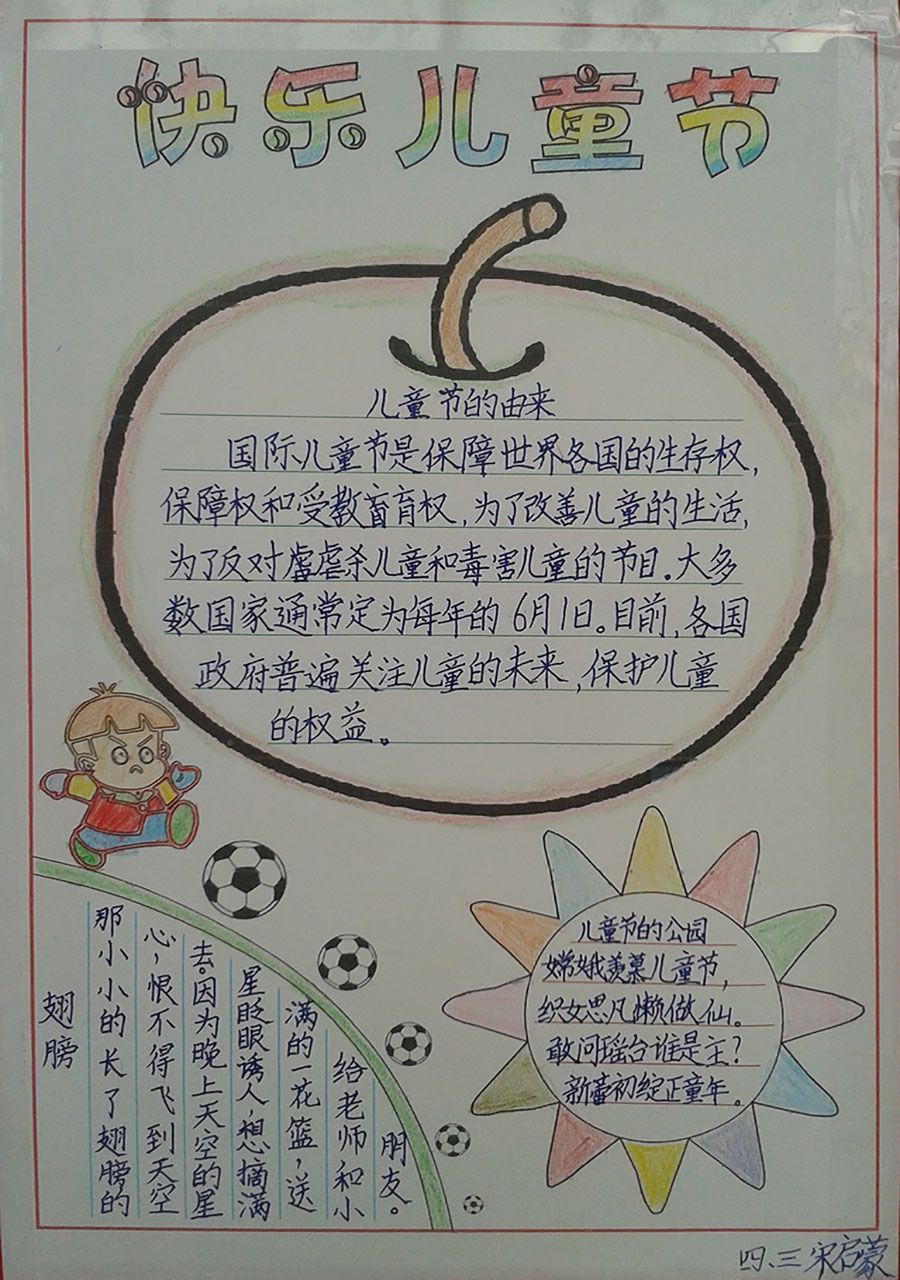 快乐儿童节
儿童节的由来
国际儿童节是保障世界各国的生存权，
保障权和受教育权，为了改善儿童的生活，
为了反对虐杀儿童和毒害儿童的节目。大多
数国家通常定为每年的6月1日。目前，各国
政府普遍关注儿童的未来，保护儿童
的权益。
翅膀
那小小的长了翅膀的
心，恨不得飞到天空
去。因为晚上天空的星
星眨眼诱人，想摘满
满的一花篮，送
给老师和小
朋友。
儿童节的公园
嫦娥羡慕儿童节，
织女思凡懒做仙。
敢问瑶台谁是主？
新蕾初绽正童年。
四、三 宋启蒙